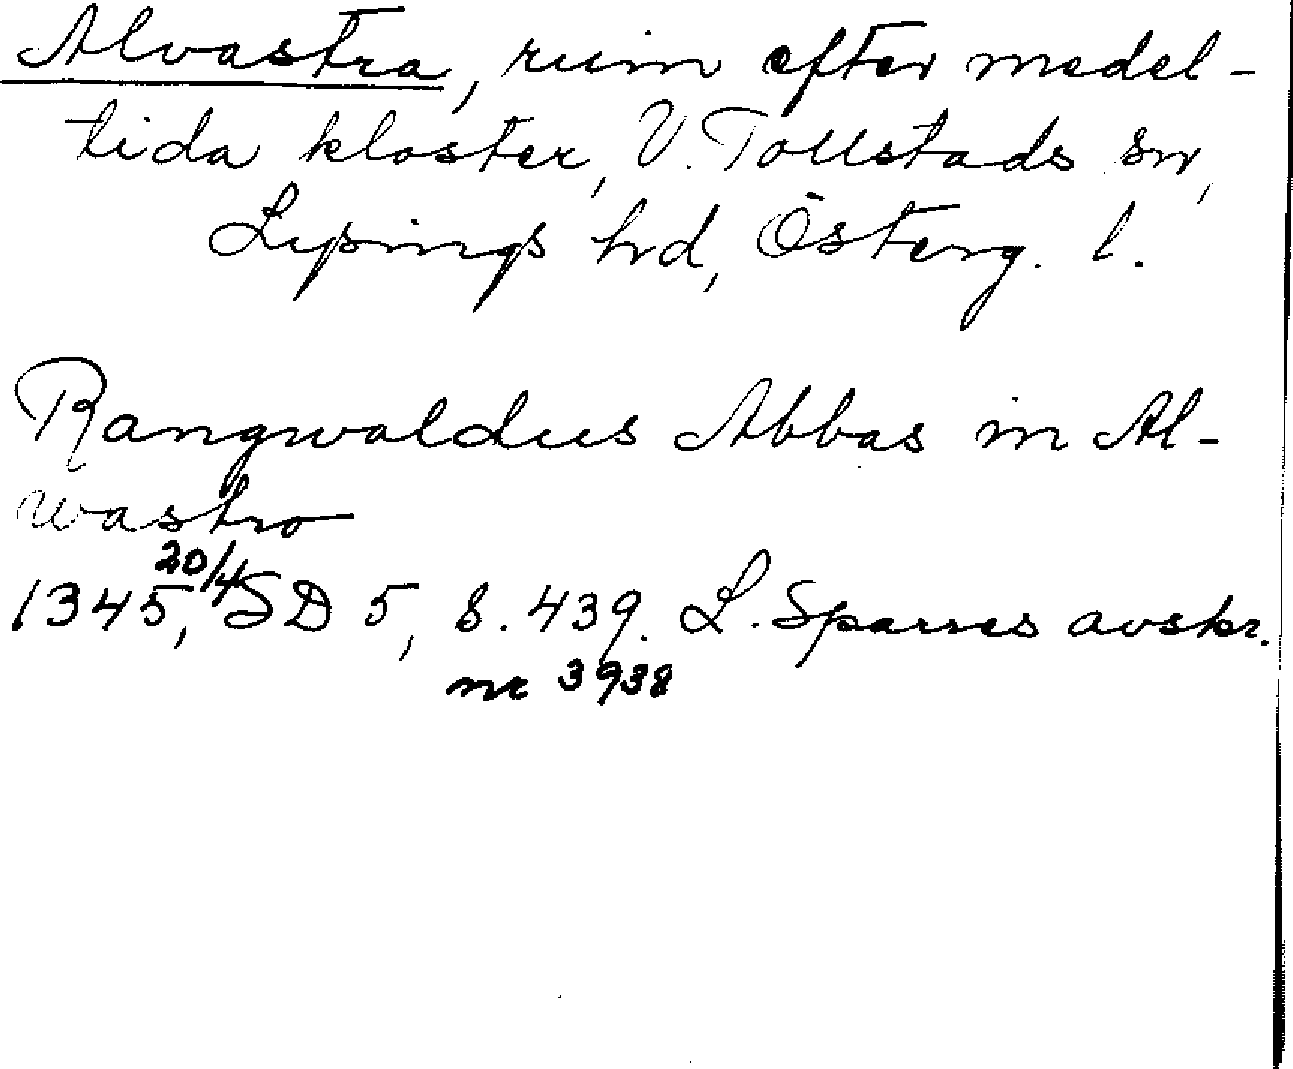 Alvastra, ruin efter medel-
tida kloster, V. Tollstads sn,
Lysings hd, Österg. l.
Rangwaldus Abbas in Al-
wastro
1345, 20/4 SD 5, s. 439. L. Sparres avskr.
nr 3938